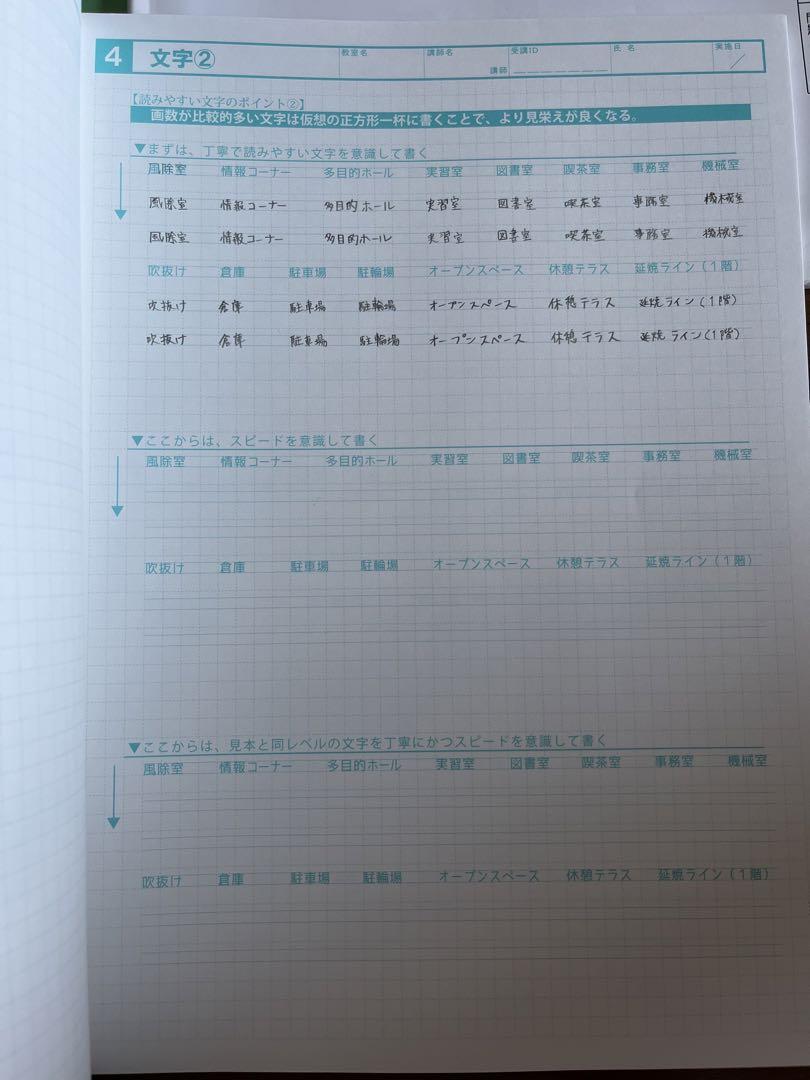 4 文字② 教室名 講師名 講師 受講ID 氏名 実施日 ／
【読みやすい文字のポイント②】
画数が比較的多い文字は仮想の正方形一杯に書くことで、より見栄えが良くなる。
▼まずは、丁寧で読みやすい文字を意識して書く
風除室 情報コーナー 多目的ホール 実習室 図書室 喫茶室 事務室 機械室
風除室 情報コーナー 多目的ホール 実習室 図書室 喫茶室 事務室 機械室
風除室 情報コーナー 多目的ホール 実習室 図書室 喫茶室 事務室 機械室
吹抜け 倉庫 駐車場 駐輪場 オープンスペース 休憩テラス 延焼ライン（1階）
吹抜け 倉庫 駐車場 駐輪場 オープンスペース 休憩テラス 延焼ライン（1階）
吹抜け 倉庫 駐車場 駐輪場 オープンスペース 休憩テラス 延焼ライン（1階）
▼ここからは、スピードを意識して書く
風除室 情報コーナー 多目的ホール 実習室 図書室 喫茶室 事務室 機械室
吹抜け 倉庫 駐車場 駐輪場 オープンスペース 休憩テラス 延焼ライン（1階）
▼ここからは、見本と同レベルの文字を丁寧にかつスピードを意識して書く
風除室 情報コーナー 多目的ホール 実習室 図書室 喫茶室 事務室 機械室
吹抜け 倉庫 駐車場 駐輪場 オープンスペース 休憩テラス 延焼ライン（1階）